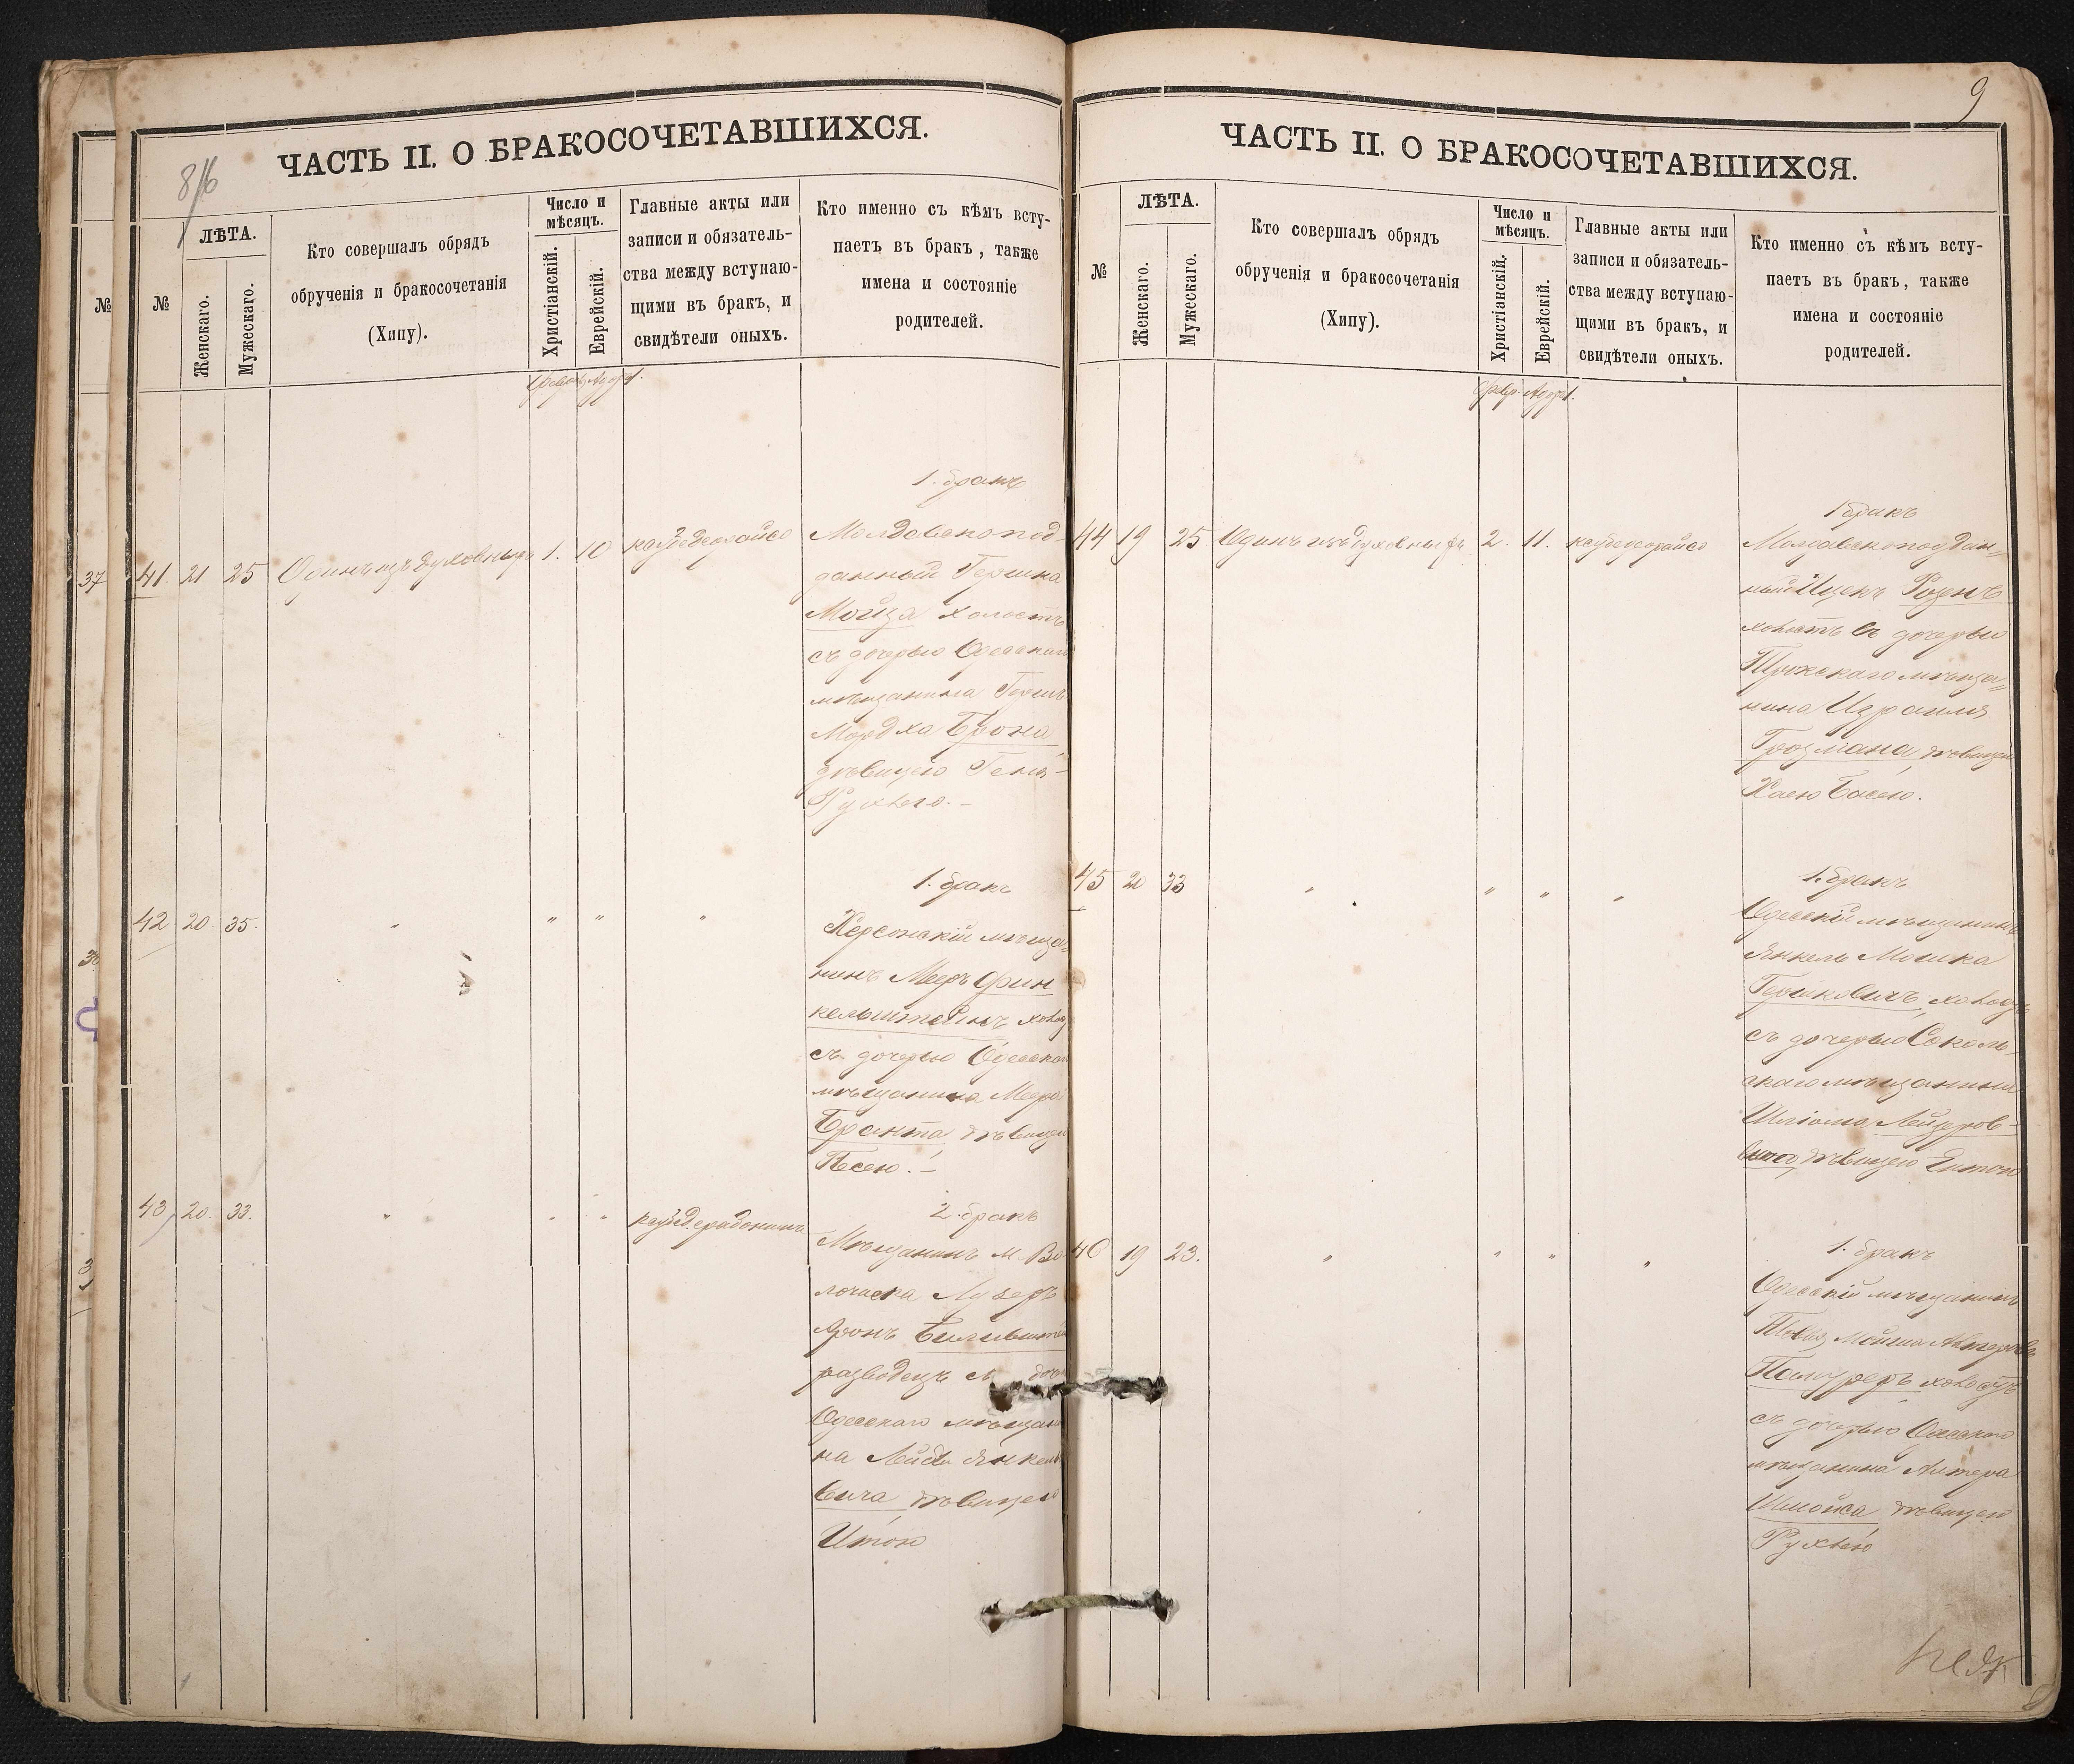 8/16
ЧАСТЬ II. О БРАКОСОЧЕТАВШИХСЯ.
№
№
ЛѢТА.
Женскаго.
Мужескаго.
Кто совершалъ обрядъ
обрученія и бракосочетанія
(Хипу).
Число и
мѣсяцъ.
Христіанскій.
Еврейскій.
Главные акты или
записи и обязатель-
ства между вступаю-
щими въ бракъ, и
свидѣтели оныхъ.
Кто именно съ кѣмъ всту-
паетъ въ бракъ, также
имена и состояніе
родителей.
37
38
3
41 21 25 Одинъ изъ духовныхъ 1. 10
1. бракъ
Молдавскопод-
данный Гершка
Мойза холостъ
съ дочерью Одесскаго
мѣщанина Герш
Мордха Брона
дѣвицею Геня-
Рухлею.-
42 20 35. " " " "
1. бракъ
Херсонскій мѣща-
нинъ Мееръ Фин
кельштейнъ холос
съ дочерью Одесскаго
мѣщанина Меера
Бранта дѣвицею
Песею.-
43 20. 33. " " "
2. бракъ
Мѣщанинъ м. Во
лочиска
Аронъ
разводецъ
Одесскаго мѣщани
на Лейба Янкеле
вича дѣвицею
Итою
9
ЧАСТЬ II. О БРАКОСОЧЕТАВШИХСЯ.
№
ЛѢТА.
Женскаго.
Мужескаго.
Кто совершалъ обрядъ
обрученія и бракосочетанія
(Хипу).
Число и
мѣсяцъ.
Христіанскій.
Еврейскій.
Главные акты или
записи и обязатель-
ства между вступаю-
щими въ бракъ, и
свидѣтели оныхъ.
Кто именно съ кѣмъ всту-
паетъ въ бракъ, также
имена и состояніе
родителей.
Февр. Адръ 1.
44 19 25 Одинъ изъ духовныхъ 2. 11.
1 бракъ
Молдавскоподдан-
ный Ицекъ Розенъ
холостъ съ дочерью
мѣща-
нина Израиля
Грозмана дѣвицею
Хаею Басею.
45 20 33 " " " "
1. бракъ
Одесскій мѣщанинъ
Янкель Мошка
Гершковичъ холостъ
съ дочерью Соколь-
скаго мѣщанина
Шлiома Лейзеров-
дѣвицею
46 19 23. " " " "
1. бракъ
Одесскій мѣщанинъ
холостъ
съ дочерью Одесскаго
мѣщанина Алтера
Шмойса дѣвицею
Рухлею